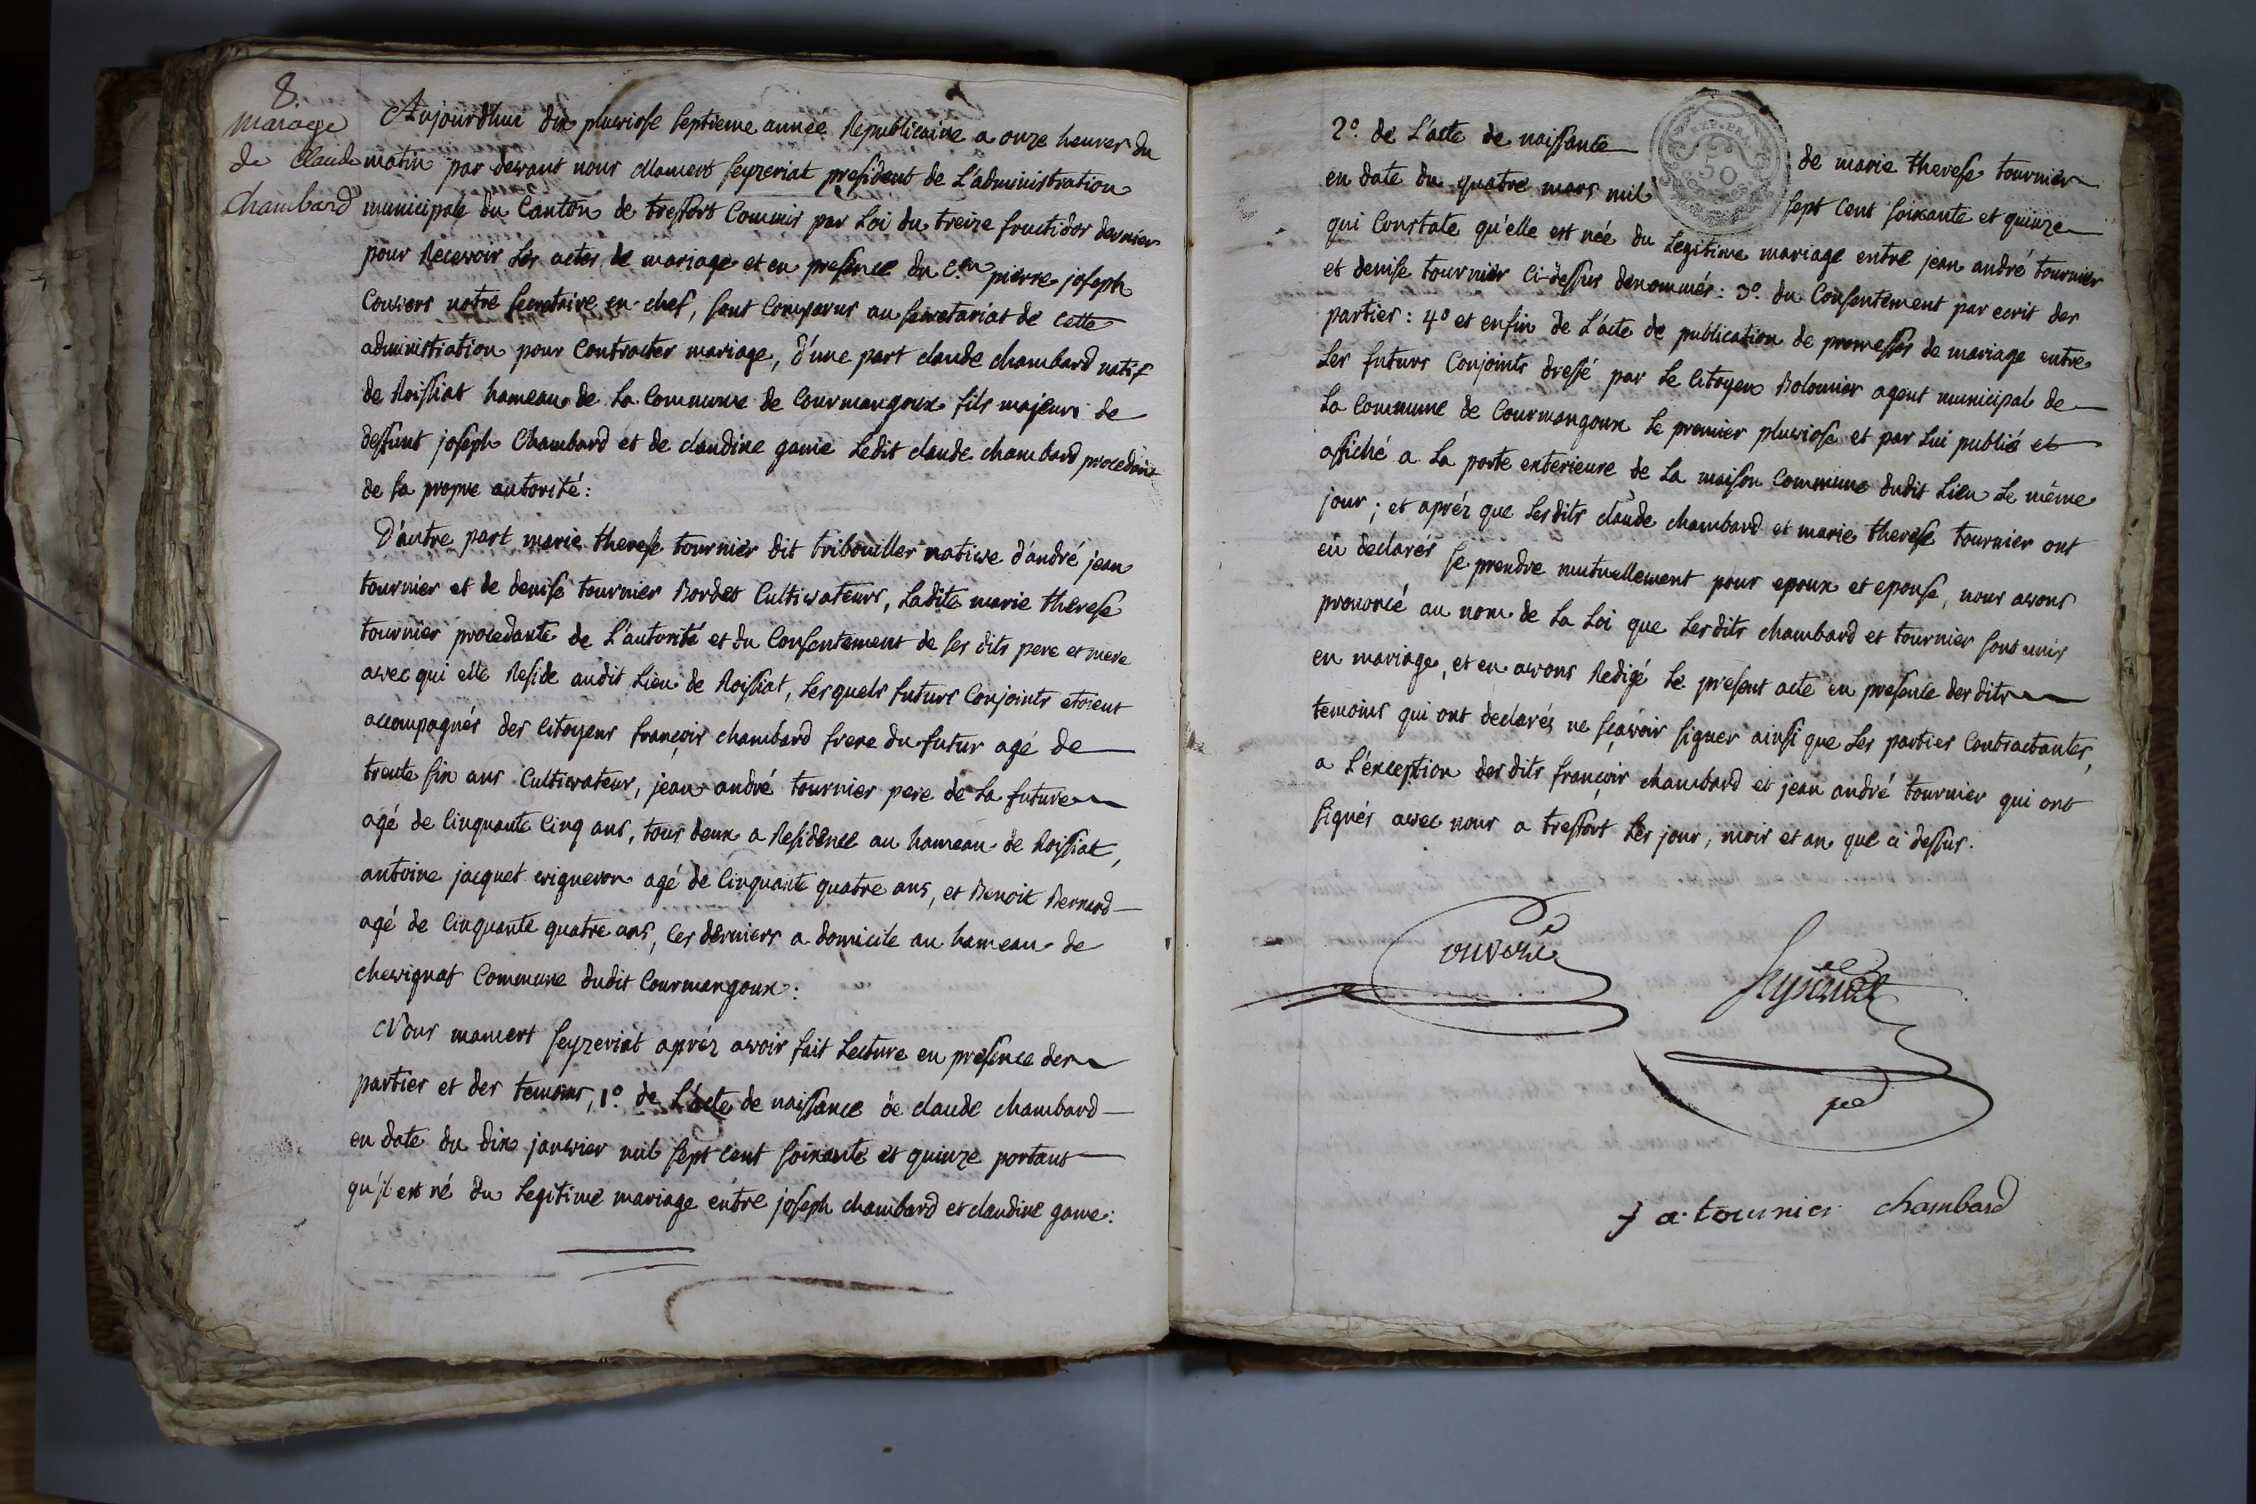 8.
Mariage
de Claude
Chambard
Aujourd'hui dix pluviose septieme année Republicaine a onze heures du
matin par devant nous Mamert seyzeriat president de L'administration
municipale du Canton de treffort Commis par Loi du treize fructidor dernier
pour Recevoir Les actes de mariage et en presence du c.en pierre joseph
Couvers notre secretaire en chef, sont Comparus au secretariat de cette
administration pour Contracter mariage, d'une part claude chambard natif
de Roissiat hameau de La Commune de Courmangoux fils majeur de
deffunt joseph Chambard et de claudine game Ledit claude chambard procedant
de sa propre autorité :
D'autre part marie therese tournier dit tribouiller native d'andré jean
tournier et de denise tournier Bordet Cultivateurs, Ladite marie therese
tournier procedante de L'autorité et du Consentement de ses dits pere et mere
avec qui elle Reside audit Lieu de Roissiat, Lesquels futurs Conjoints etoient
accompagnés des Citoyens françois chambard frere du futur agé de
trente six ans Cultivateur, jean andré tournier pere de La future
agé de Cinquante Cinq ans, tous deux a Residence au hameau de Roissiat,
antoine jacquet vigneron agé de Cinquante quatre ans, et Benoit Bernard
agé de Cinquante quatre ans, ces derniers a domicile au hameau de
chevignat Commune dudit Courmangoux :
Nous mamert seyzeriat aprés avoir fait Lecture en presence des
parties et des temoins, 1.° de L'acte de naissance de claude chambard
en date du dix janvier mil sept cent soixante et quinze portant
qu'il est né du Legitime mariage entre joseph chambard et claudine game :
2.° de L'acte de naissance de marie therese tournier
en date du quatre mars mil sept cent soixante et quinze
qui Constate qu'elle est née du Legitime mariage entre jean andré tournier
et denise tournier Ci-dessus denommés : 3.° du Consentement par ecrit des
parties : 4.° et enfin de L'acte de publication de promesses de mariage entre
Les futurs Conjoints dressé par Le Citoyen Bolomier agent municipal de
La Commune de Courmangoux Le premier pluviose et par Lui publié et
affiché a La porte exterieure de La maison Commune dudit Lieu Le même
jour ; et aprés que Lesdits claude chambard et marie therese tournier ont
eu declarés se prendre mutuellement pour epoux et epouse, nous avons
prononcé au nom de La Loi que Lesdits chambard et tournier sont unis
en mariage, et en avons Redigé Le present acte en presence desdits
temoins qui ont declarés ne sçavoir signer ainsi que Les parties Contractantes,
a L'exception desdits françois chambard et jean andré tournier qui ont
signés avec nous a treffort Les jour, mois et an que ci dessus.
50
Seyzeriat
j a. tournier chambard